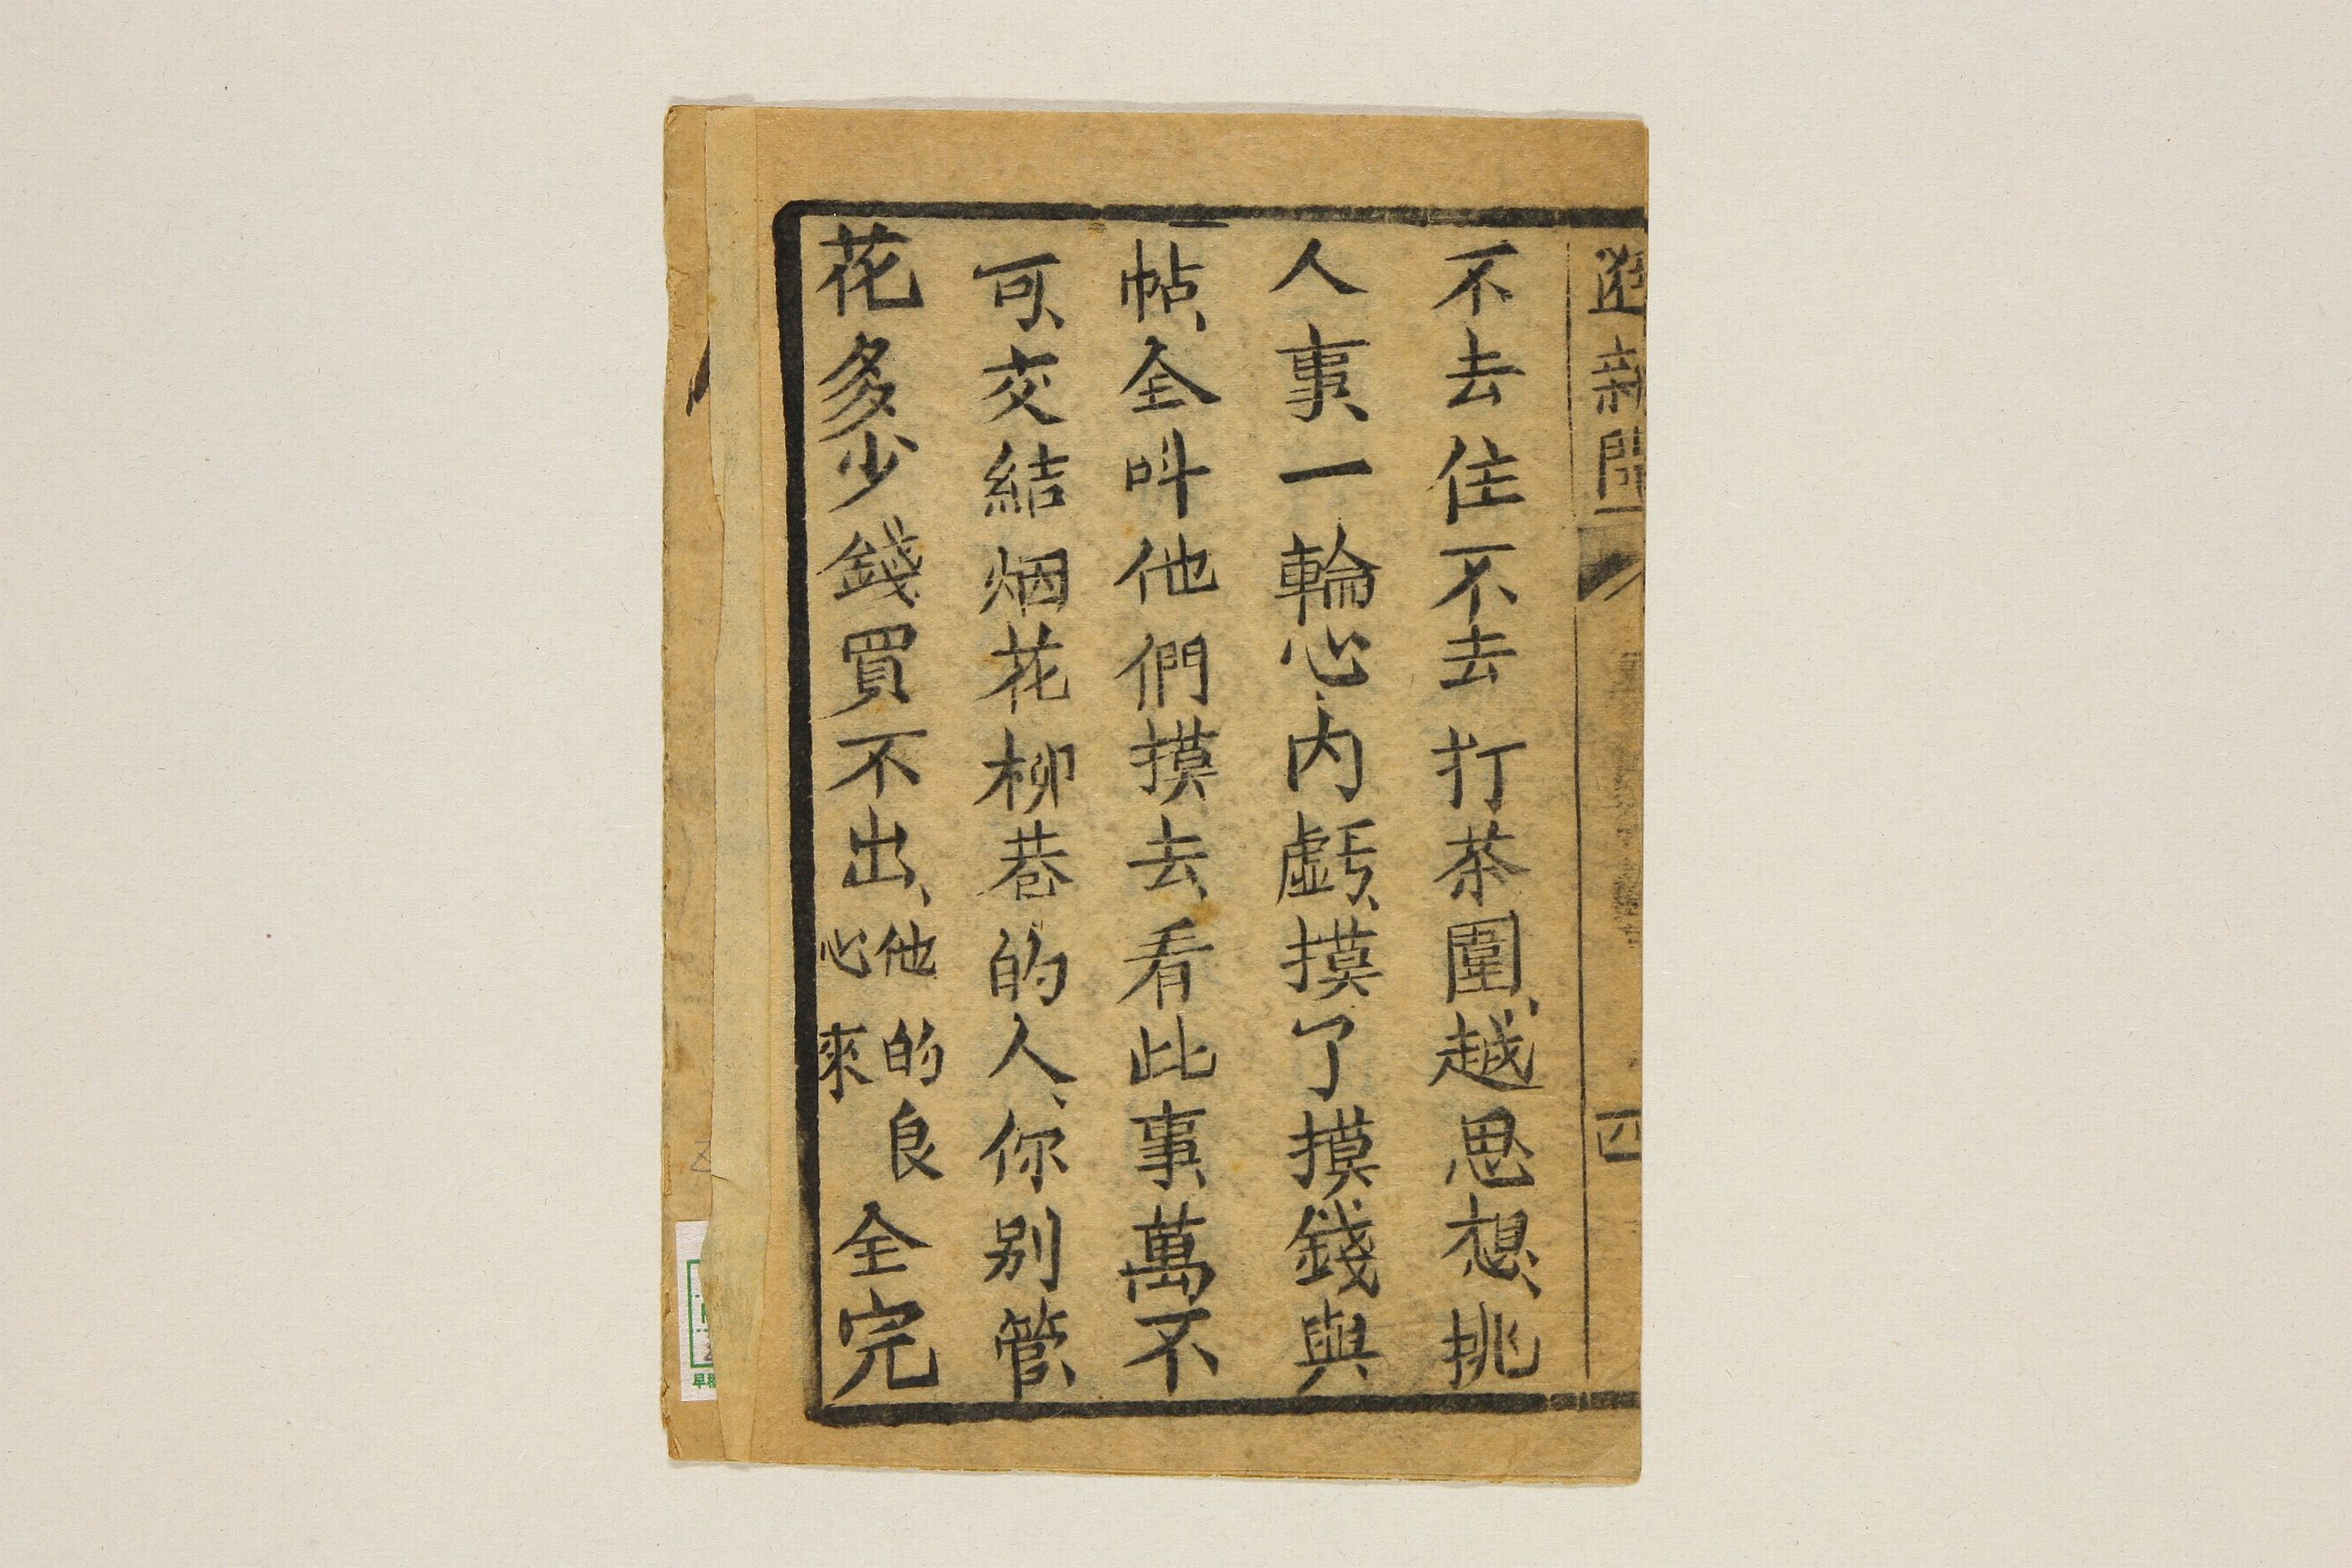 不去住不去打茶圍、越思想、挑
人事、一輪心内虧、摸了摸錢與
帖、全呌他們摸去、看此事、萬不
可、交結烟花柳巷的人、你别管、
花多少錢買不出、他的良心來全完
新聞
四